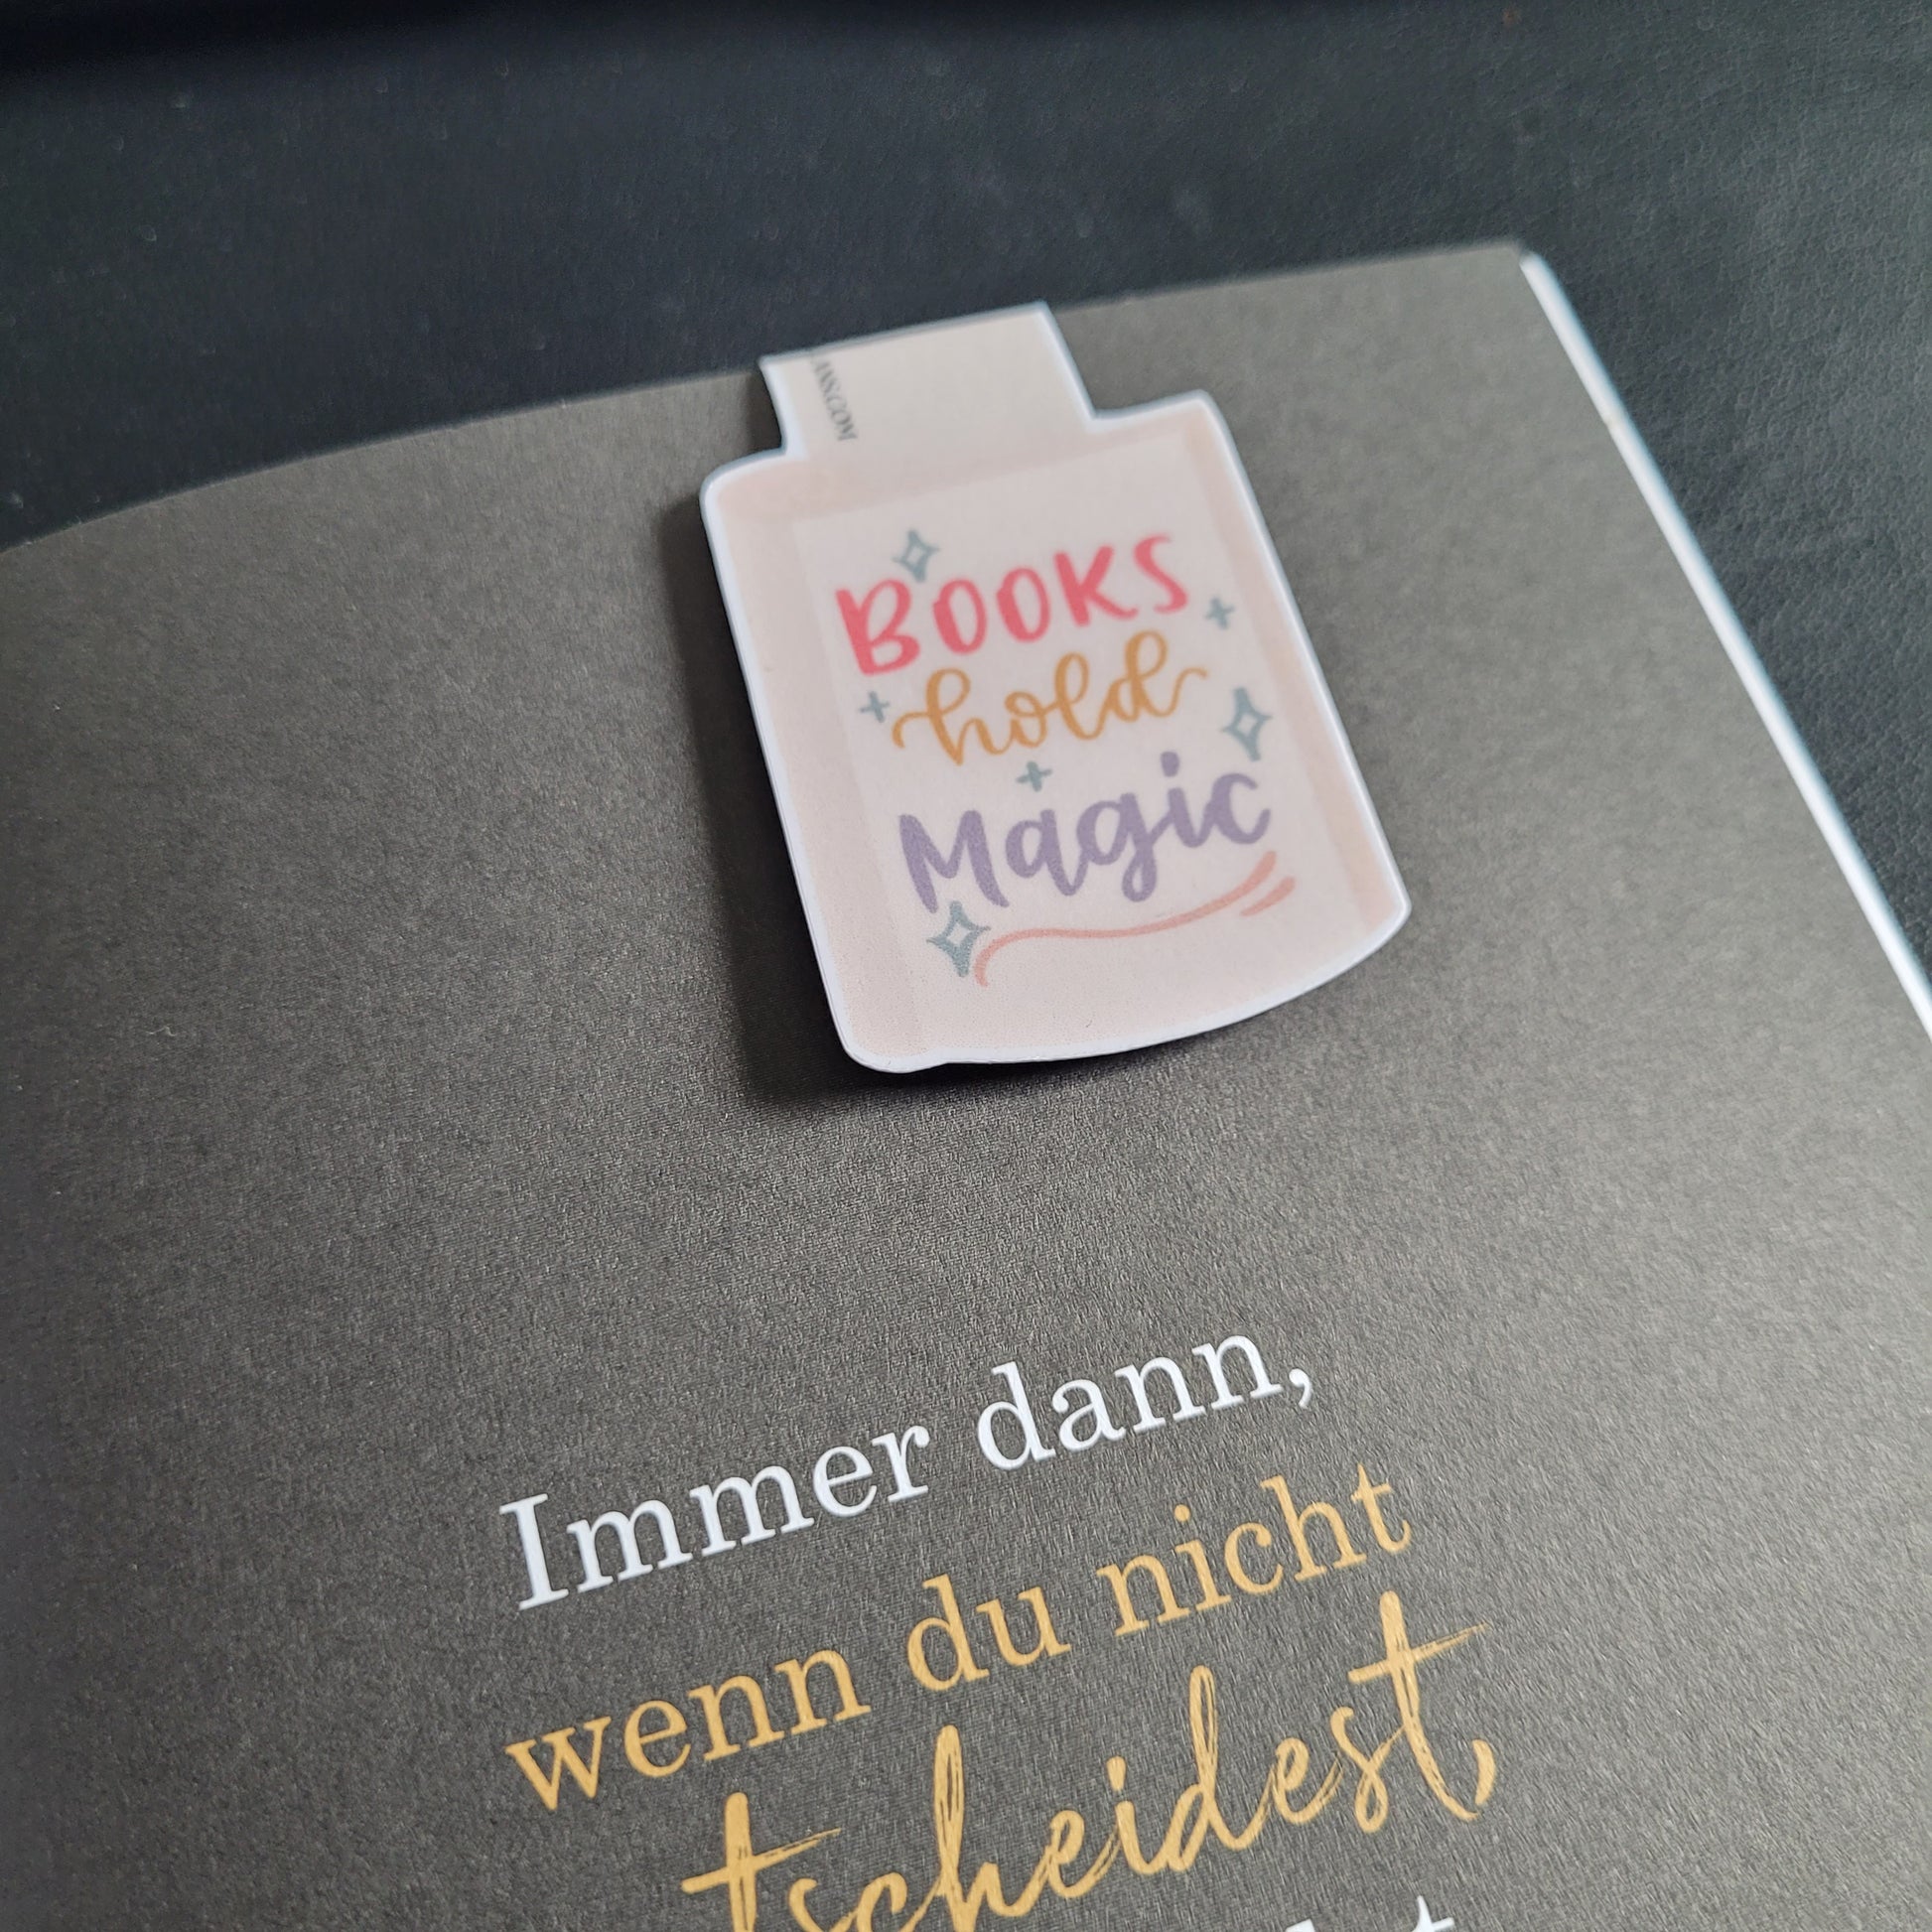 BOOKS
hold
Magic
Immer dann,
wenn du nicht
tscheidest,